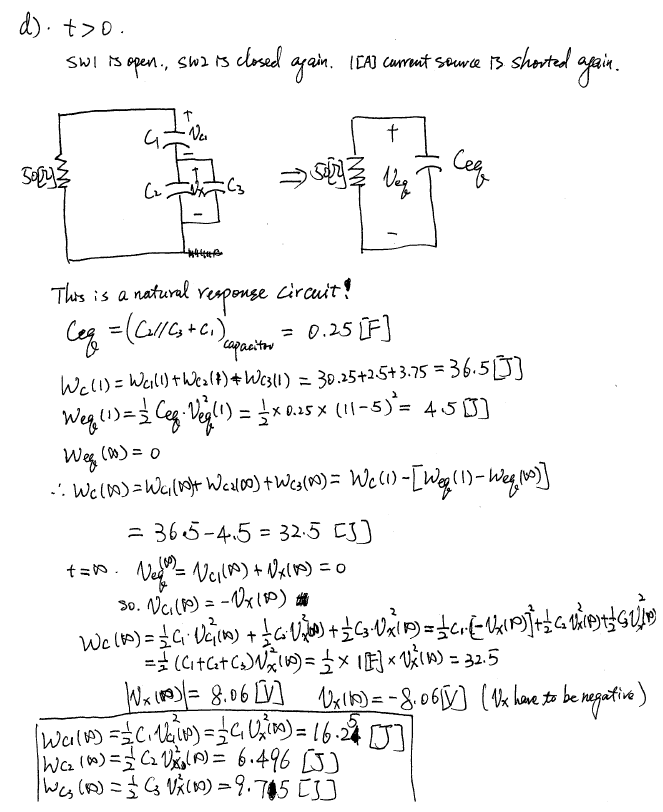 d). t>0.
SW1 is open., SW2 is closed again. 1[A] current source is shorted again.
50[Ω] C1 + Vc1 - C2 + Vx - C3 ⇒ 50[Ω] + Veq - Ceq
This is a natural response circuit!
Ceq = (C2//C3 + C1)capacitor = 0.25 [F]
Wc(1) = Wc1(1) + Wc2(1) + Wc3(1) = 30.25+2.5+3.75 = 36.5 [J]
Weq(1) = 1/2 Ceq·Veq²(1) = 1/2 × 0.25 × (11-5)² = 4.5 [J]
Weq(∞) = 0
∴ Wc(∞) = Wc1(∞) + Wc2(∞) + Wc3(∞) = Wc(1) - [Weq(1) - Weq(∞)]
= 36.5 - 4.5 = 32.5 [J]
t=∞. Veq(∞) = Vc1(∞) + Vx(∞) = 0
so. Vc1(∞) = -Vx(∞)
Wc(∞) = 1/2 C1·Vc1²(∞) + 1/2 C2·Vx²(∞) + 1/2 C3·Vx²(∞) = 1/2 C1·[-Vx(∞)]² + 1/2 C2 Vx²(∞) + 1/2 C3 Vx²(∞)
= 1/2 (C1+C2+C3) Vx²(∞) = 1/2 × 1[F] × Vx²(∞) = 32.5
|Vx(∞)| = 8.06 [V] Vx(∞) = -8.06 [V] (Vx have to be negative)
Wc1(∞) = 1/2 C1 Vc1²(∞) = 1/2 C1 Vx²(∞) = 16.25 [J]
Wc2(∞) = 1/2 C2 Vx²(∞) = 6.496 [J]
Wc3(∞) = 1/2 C3 Vx²(∞) = 9.75 [J]